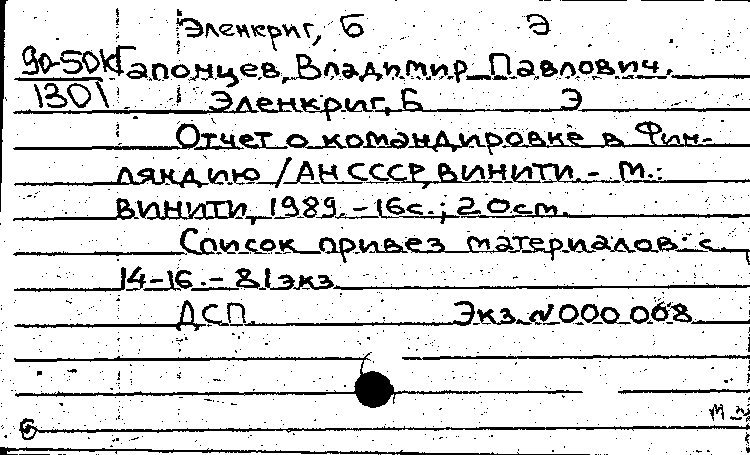 Эленкриг, Б Э
90-50К Гапонцев, Владимир Павлович.
1301 Эленкриг, Б Э
Отчет о командировке в Фин-
ляндию / АН СССР, ВИНИТИ. - М.:
ВИНИТИ, 1989. - 16 с.; 20 cm.
Список привез материалов: с.
14-16. - 81 экз
ДСП. Экз. № 000 008